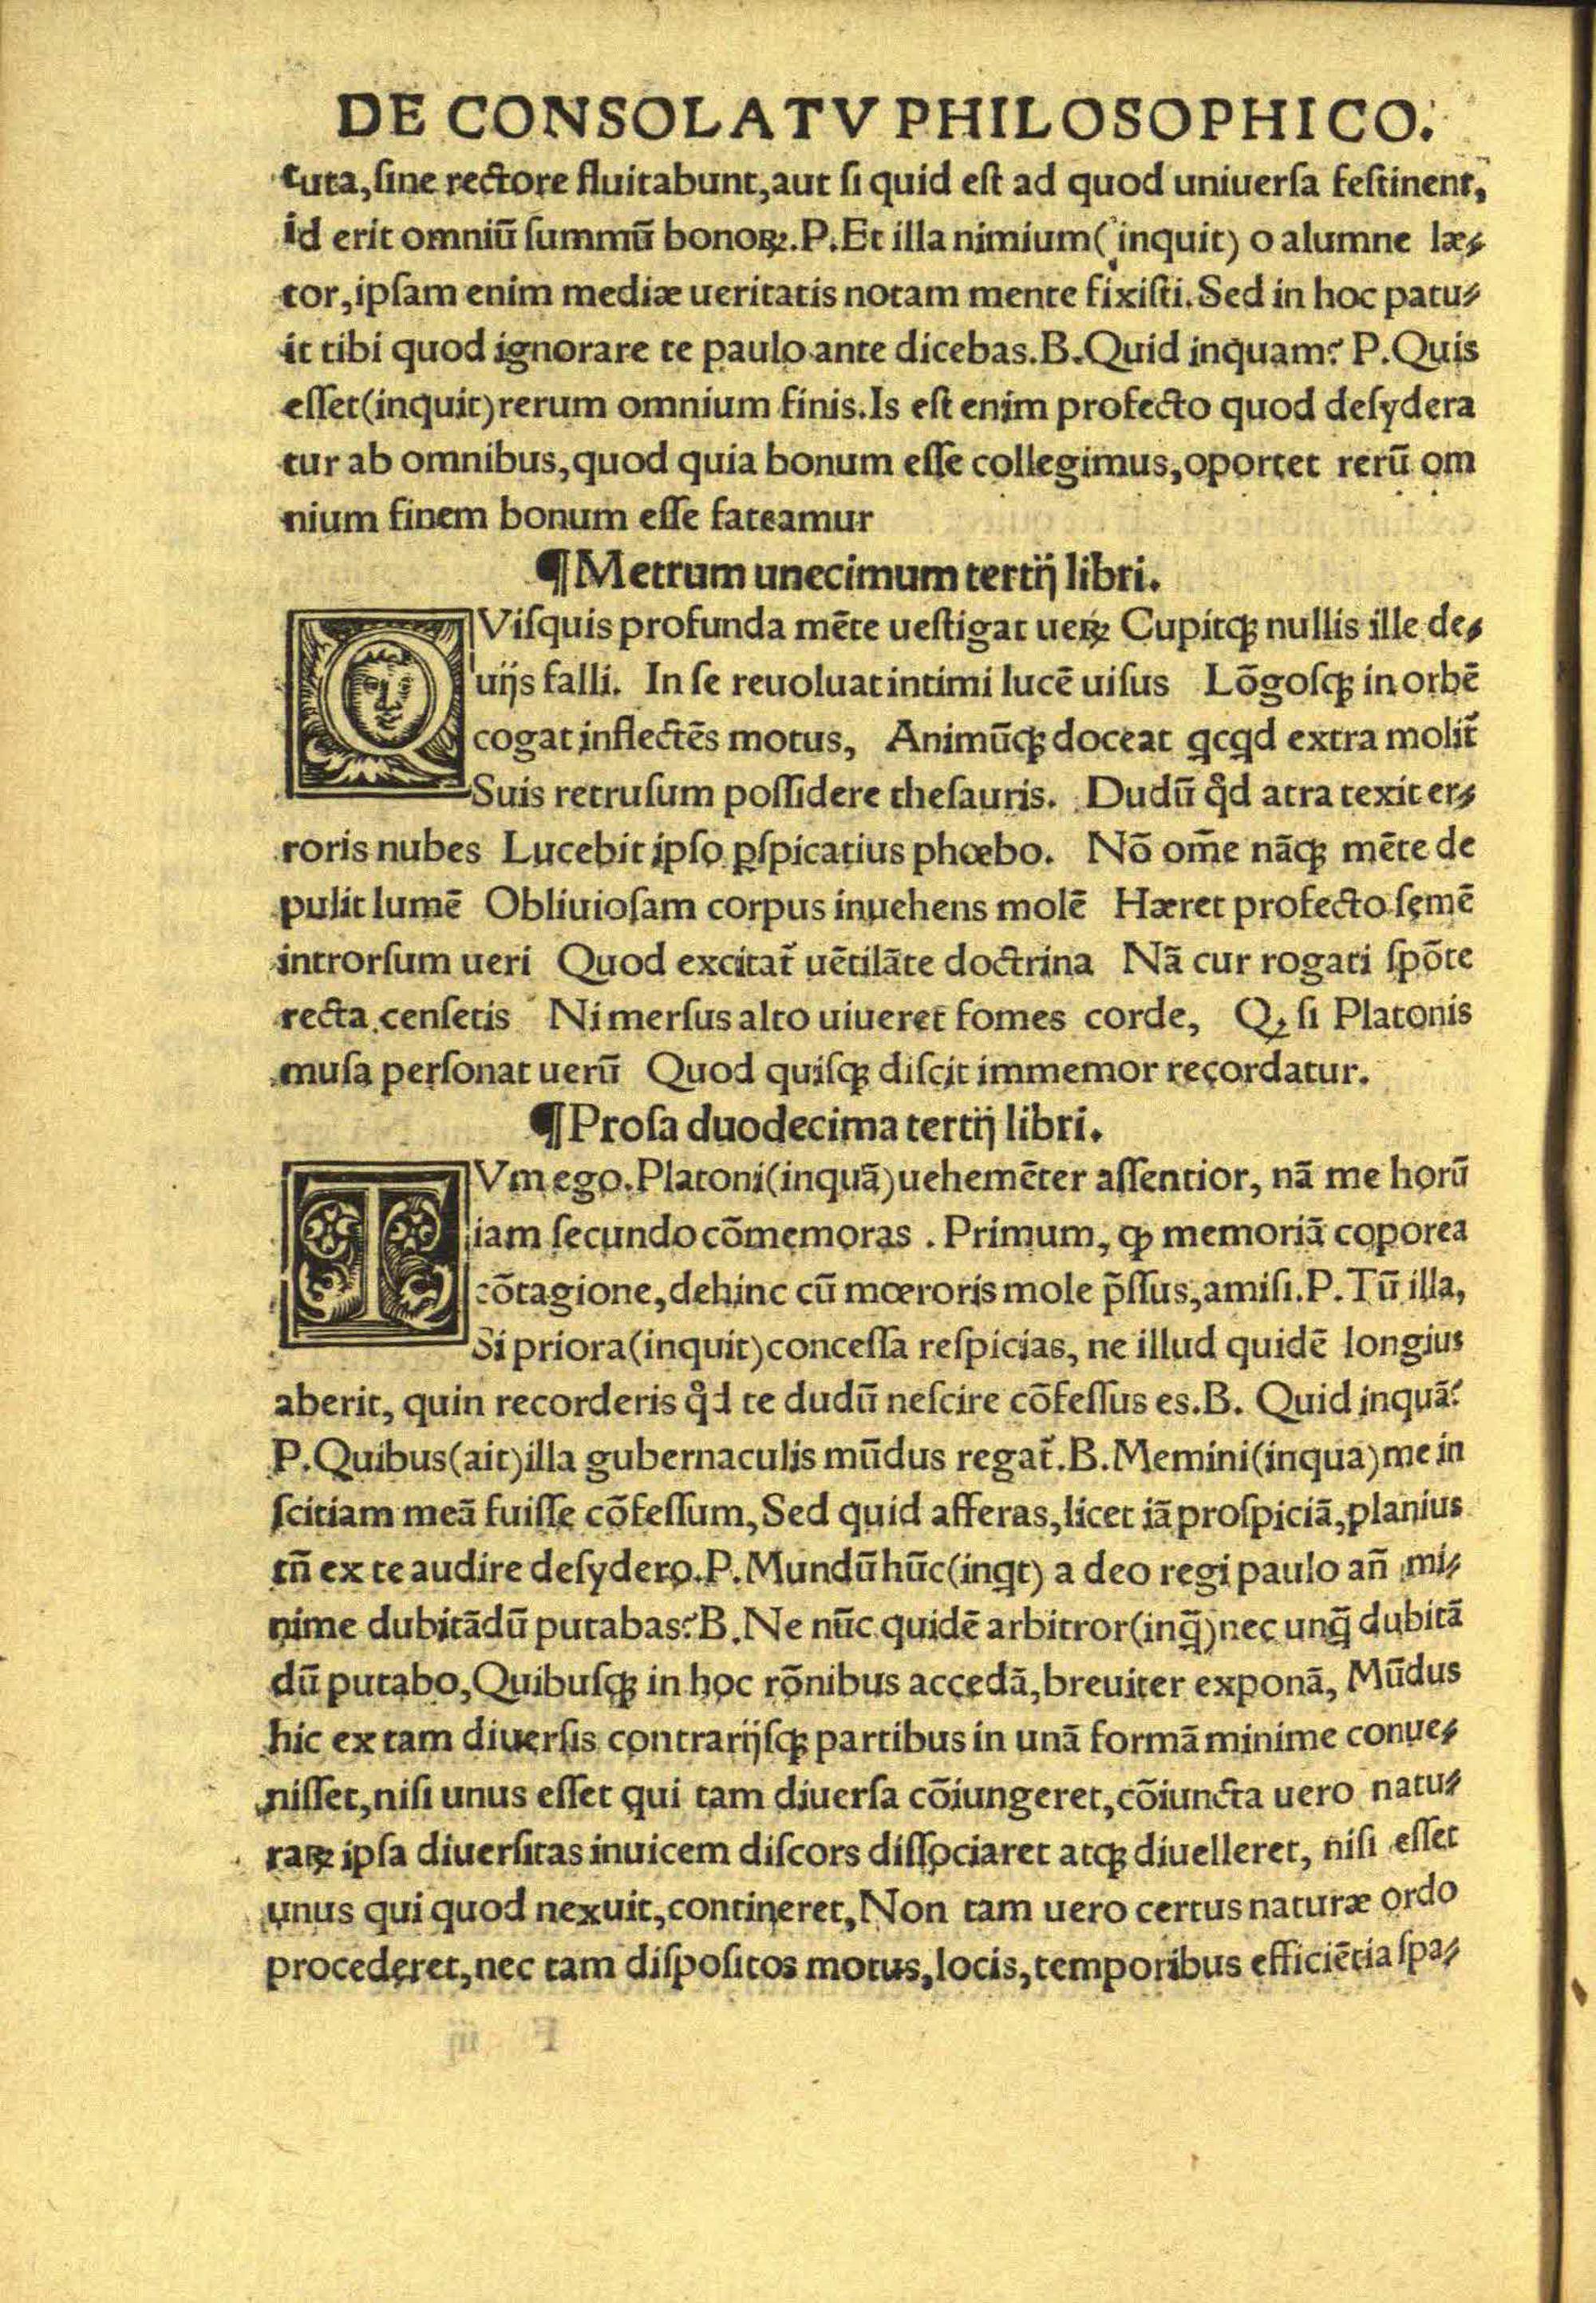 DE CONSOLATV PHILOSOPHICO.
tuta,ſine rectore fluitabunt,aut ſi quid eſt ad quod uniuerſa feſtinent,
id erit omniū ſummū bonoꝝ.P.Et illa nimium(inquit) o alumne læ⸗
tor,ipſam enim mediæ ueritatis notam mente fixiſti.Sed in hoc patu⸗
it tibi quod ignorare te paulo ante dicebas.B.Quid inquam? P.Quis
eſſet(inquit)rerum omnium finis.Is eſt enim profecto quod deſydera
tur ab omnibus,quod quia bonum eſſe collegimus,oportet rerū om
nium finem bonum eſſe fateamur
¶Metrum unecimum tertij libri.
QViſquis profunda mēte ueſtigat ueꝝ Cupitqꝫ nullis ille de⸗
uijs falli. In ſe reuoluat intimi lucē uiſus Lōgoſqꝫ in orbē
cogat inflectēs motus, Animūqꝫ doceat qcqd extra molit᷑
Suis retruſum poſſidere theſauris. Dudū qd̛ atra texit er⸗
roris nubes Lucebit ipſo ꝑſpicatius phœbo. Nō om̄e nāqꝫ mēte de
pulit lumē Obliuioſam corpus inuehens molē Hæret profecto ſemē
introrſum ueri Quod excitat᷑ uētilāte doctrina Nā cur rogati ſpōte
recta cenſetis Ni merſus alto uiueret fomes corde, Qꝫ ſi Platonis
muſa perſonat uerū Quod quiſqꝫ diſcit immemor recordatur.
¶Proſa duodecima tertij libri.
TVm ego.Platoni(inquā)uehemēter aſſentior, nā me horū
iam ſecundo cōmemoras . Primum, ꝙ memoriā coporea
cōtagione,dehinc cū mœroris mole p̄ſſus,amiſi.P.Tū illa,
Si priora(inquit)conceſſa reſpicias, ne illud quidē longius
aberit, quin recorderis qd̛ te dudū neſcire cōfeſſus es.B. Quid inquā?
P.Quibus(ait)illa gubernaculis mūdus regat᷑.B.Memini(inqua)me in
ſcitiam meā fuiſſe cōfeſſum,Sed quid afferas,licet iā proſpiciā,planius
tn̄ ex te audire deſydero.P.Mundū hūc(inqt) a deo regi paulo an̄ mi⸗
nime dubitādū putabas?B.Ne nūc quidē arbitror(inq̄)nec unq̄ dubitā
dū putabo,Quibuſqꝫ in hoc rōnibus accedā,breuiter exponā, Mūdus
hic ex tam diuerſis contrarijſqꝫ partibus in unā formā minime conue⸗
niſſet,niſi unus eſſet qui tam diuerſa cōiungeret,cōiuncta uero natu⸗
raꝝ ipſa diuerſitas inuicem diſcors diſſociaret atqꝫ diuelleret, niſi eſſet
unus qui quod nexuit,contineret,Non tam uero certus naturæ ordo
procederet,nec tam diſpoſitos motus,locis,temporibus efficiētia ſpa⸗